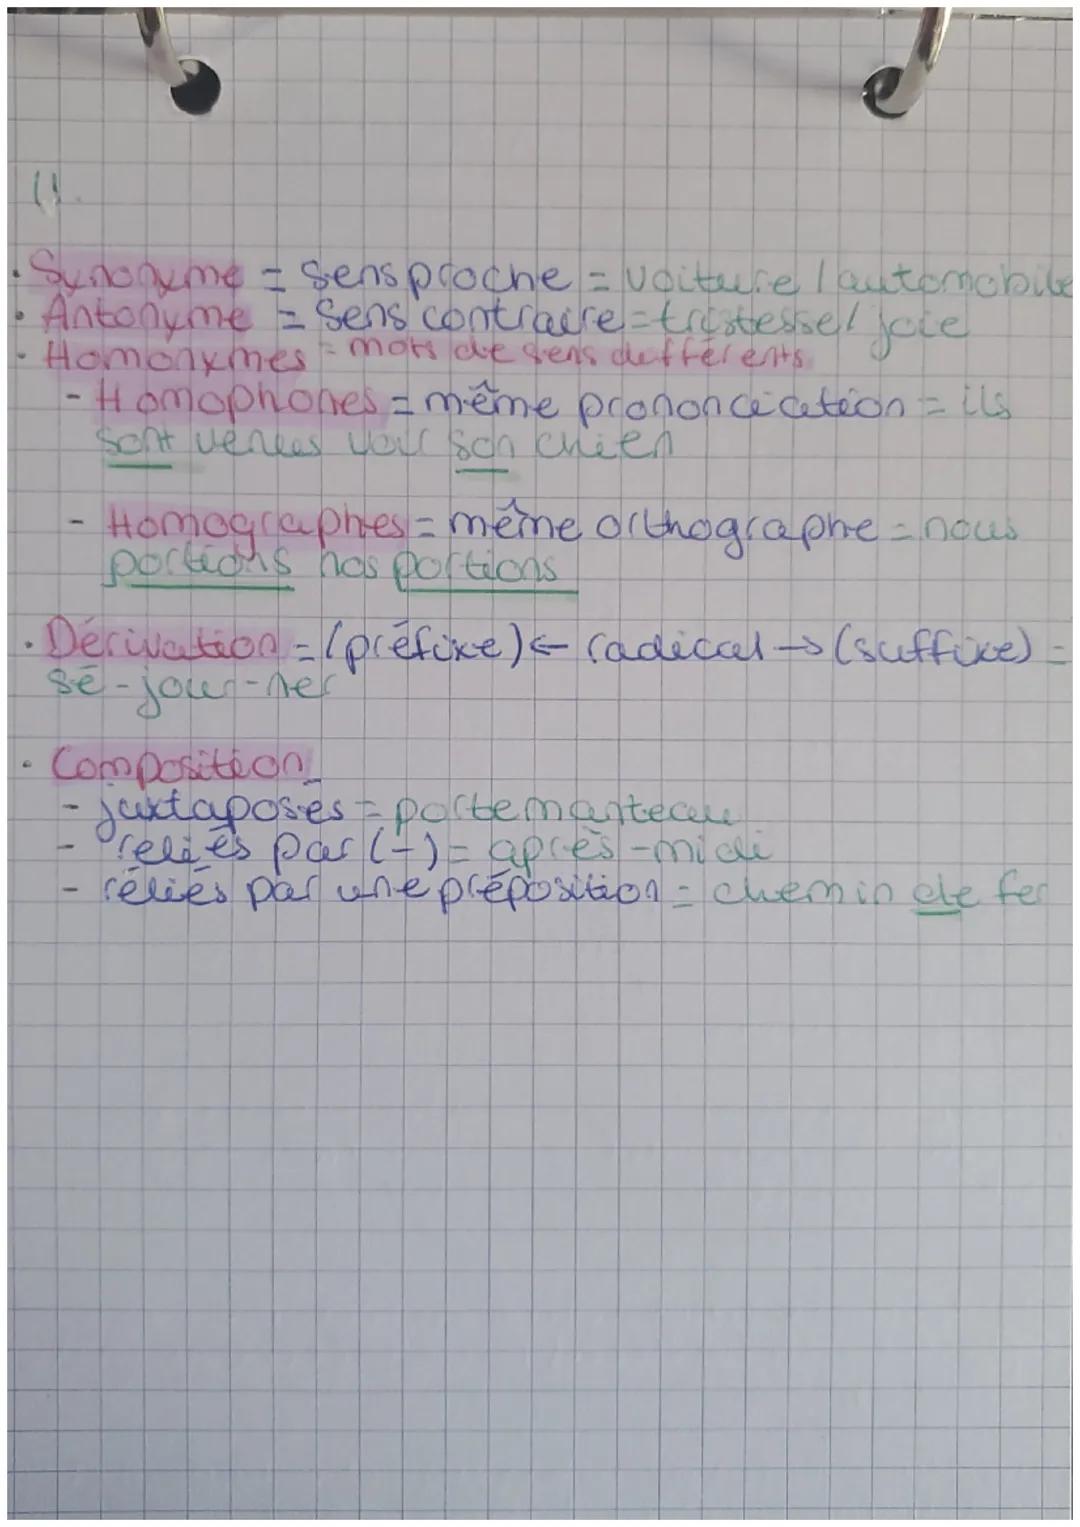 • Synonyme = sens proche = voiture / automobile
• Antonyme = sens contraire = tristesse / joie
• Homonymes = mots de sens différents
- Homophones = même prononciation = ils
sont venus voir son chien
- Homographes = même orthographe = nous
portions nos portions
• Dérivation = (préfixe) ← radical → (suffixe) =
sé-jour-ner
• Composition
- juxtaposés = portemanteau
- reliés par (-) = après-midi
- réliés par une préposition = chemin de fer